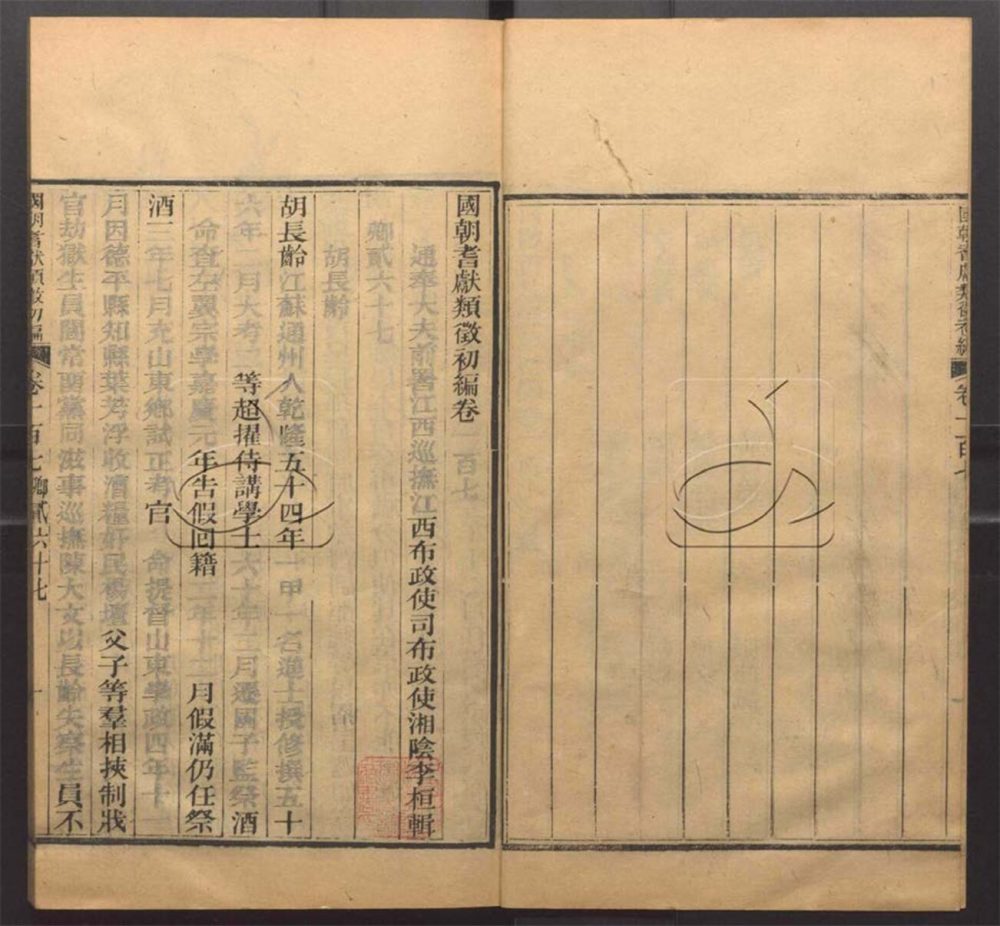 國朝耆獻類徵初編卷一百七
國朝耆獻類徵初編卷一百七
通奉大夫前署江西巡撫江西布政使司布政使湘陰李桓輯
卿貳六十七
胡長齡
胡長齡江蘇通州人乾隆五十四年一甲一名進士授修撰五十
六年二月大考二等超擢侍講學士六十年二月遷國子監祭酒
命查左翼宗學嘉慶元年告假回籍二年十二月假滿仍任祭
酒三年七月充山東鄉試正考官 命提督山東學政四年十一
月因德平縣知縣葉芳浮收漕糧奸民楊壇父子等羣相挾制戕
官劫獄生員閻常兩黨同滋事巡撫陳大文以長齡失察生員不
國朝耆獻類徵初編 卷一百七 卿貳六十七 一